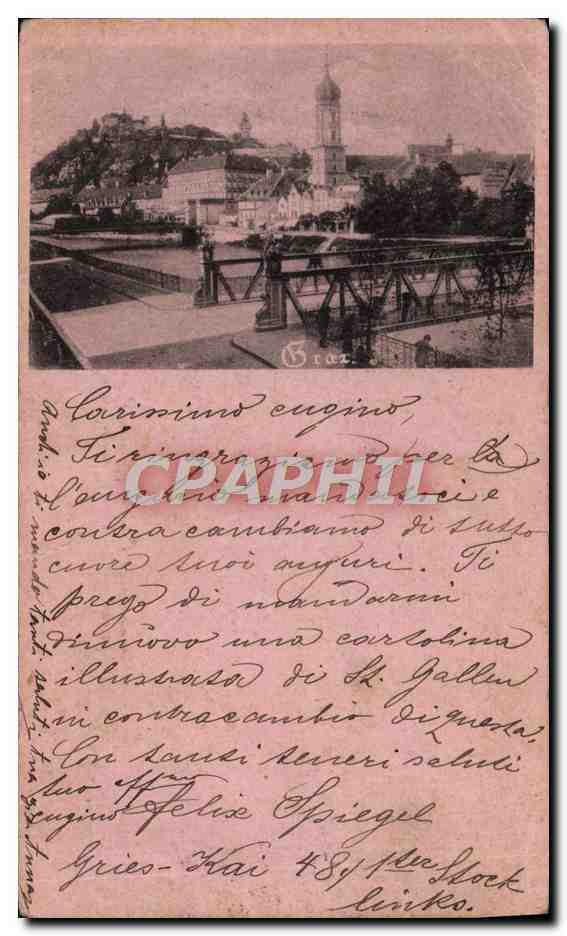 Graz.
Carissimo cugino,
Ti ringraziamo per la
l'augurio mandatoci e
contracambiamo di tutto
cuore tuoi auguri. Ti
prego di mandarmi
dinuovo una cartolina
illustrata di St. Gallen
in contracambio di questa.
Con tanti teneri saluti
tuo aff.mo
cugino Felix Spiegel
Gries-Kai 48, 1ter Stock
links.
Anch'io ti mando tanti saluti tua
CPAPHIL